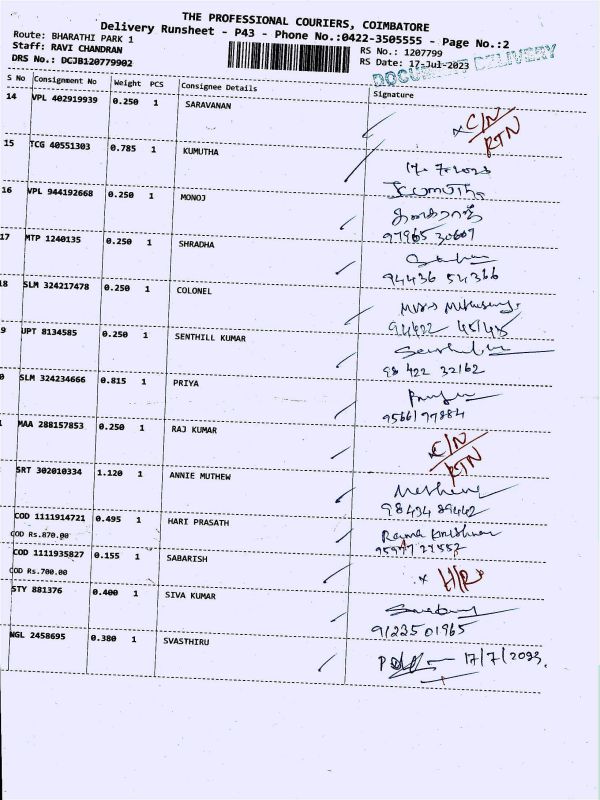 THE PROFESSIONAL COURIERS, COIMBATORE
Delivery Runsheet - P43 - Phone No.:0422-3505555 - Page No.:2
Route: BHARATHI PARK 1
Staff: RAVI CHANDRAN
DRS No.: DCJB120779902
RS No.: 1207799
RS Date: 17-Jul-2023
DOCUMENT DELIVERY
S No Consignment No Weight PCS Consignee Details Signature
14 VPL 402919939 0.250 1 SARAVANAN x C/N RTN
15 TCG 40551303 0.785 1 KUMUTHA 17.7.2023
16 VPL 944192668 0.250 1 MONOJ 97965 30607
17 MTP 1240135 0.250 1 SHRADHA 94436 54366
18 SLM 324217478 0.250 1 COLONEL 94422 45145
9 UPT 8134585 0.250 1 SENTHILL KUMAR 98 422 32162
0 SLM 324234666 0.815 1 PRIYA 9566197884
MAA 288157853 0.250 1 RAJ KUMAR x C/N RTN
SRT 302010334 1.120 1 ANNIE MUTHEW 98434 89442
COD 1111914721 0.495 1 HARI PRASATH Rama Krishnan
COD Rs.870.00
COD 1111935827 0.155 1 SABARISH x H/R
COD Rs.700.00
STY 881376 0.400 1 SIVA KUMAR 91235 01965
NGL 2458695 0.380 1 SVASTHIRU 17/7/2023.